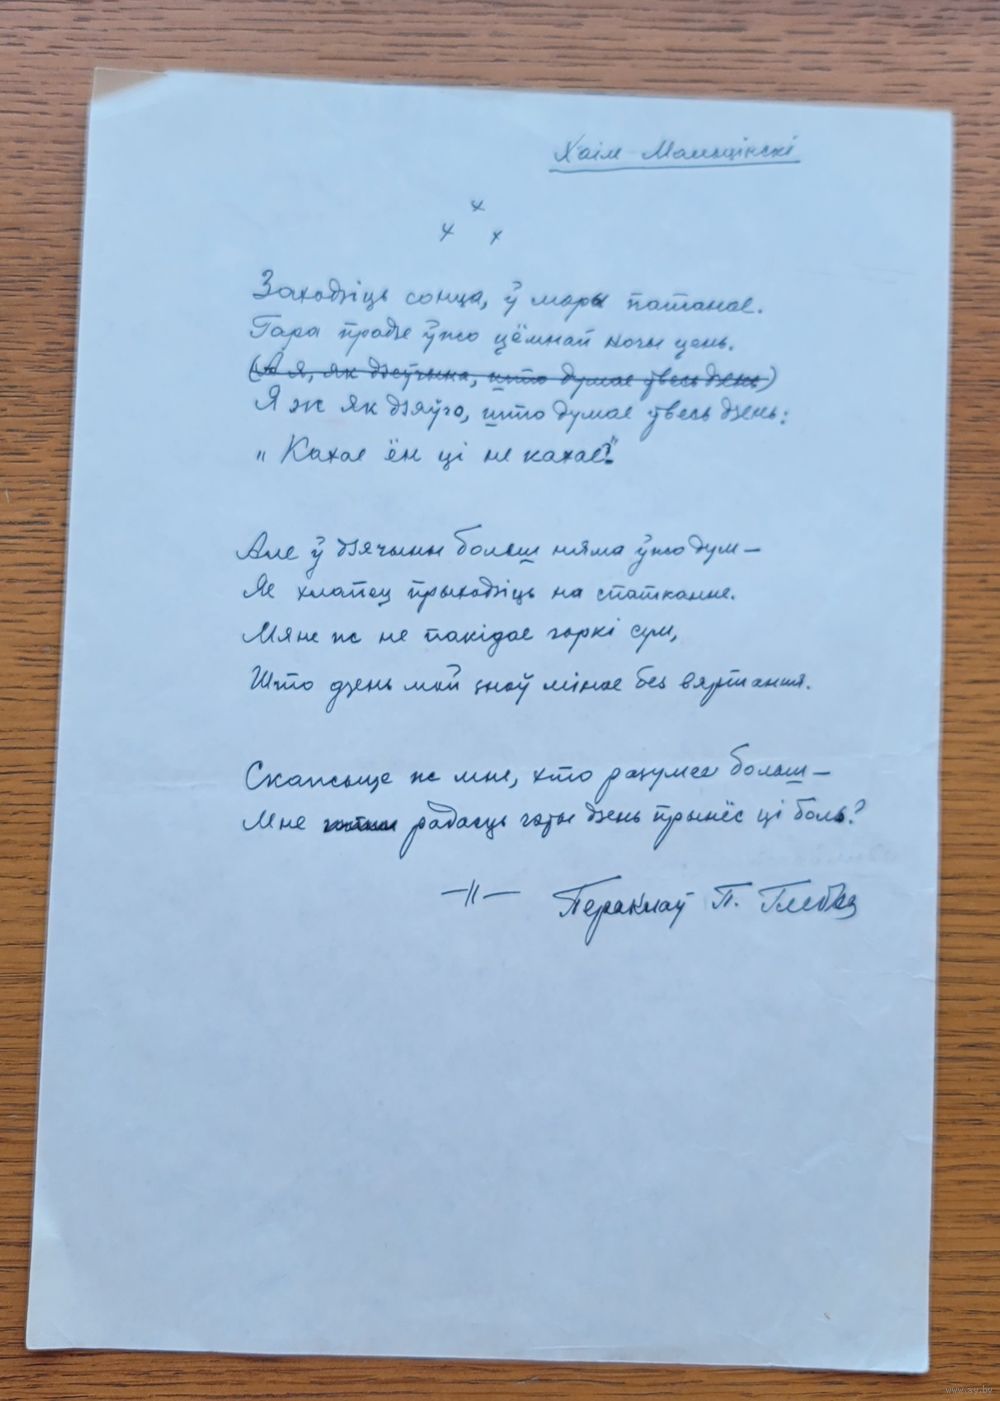 Хаім Мальцінскі
х
х х
Заходзіць сонца, ў моры патанае.
Гара прадзе ўжо цёмнай ночы цень.
(А я, як дзеўчына, што думае ўвесь дзень)
Я ж як дзяўчо, што думае ўвесь дзень:
„Кахае ён ці не кахае?"
Але ў дзячыны больш няма ўжо дум —
Як хлапец прыходзіць на спатканне.
Мяне ж не пакідае горкі сум,
Што дзень мой зноў мінае без вяртання.
Скажыце ж мне, хто разумее больш —
Мне радасць гэты дзень прынёс ці боль?
—||— Пераклаў П. Глебка
www.ay.by